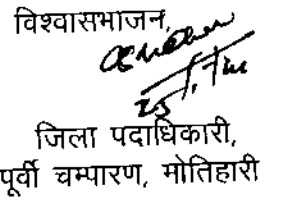 विश्वासभाजन,
जिला पदाधिकारी,
पूर्वी चम्पारण, मोतिहारी